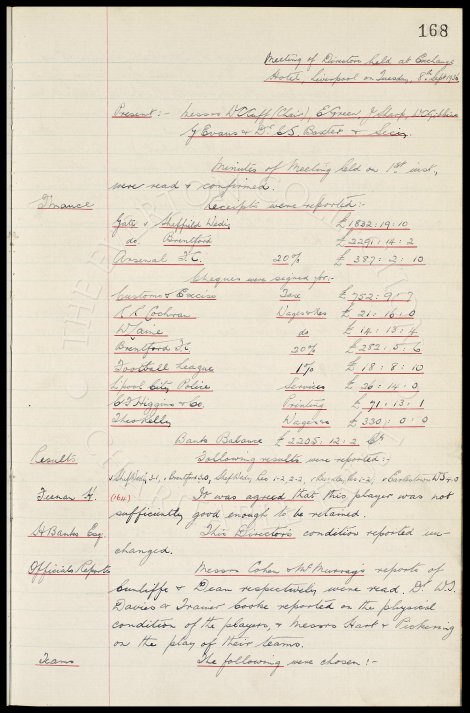 168
Meeting of Directors held at Exchange
Hotel, Liverpool on Tuesday, 8th Sept 1936
Present:- Messrs W.C. Cuff (Chair), E. Green, J. Sharp,
G Evans & Dr C.S. Baxter & Secy.
Minutes of Meeting held on 1st inst.
were read & confirmed.
Finance Receipts were reported:-
Gate v Sheffield Wedy £1832:19:10
do. Brentford £2291:14:2
Arsenal F.C. 20% £387:2:10
Cheques were signed for:-
Customs & Excise Tax £752:9:7
Cochran Wages & £21:16:0
do £14:18:4
Brentford F.C. 20% £282:5:6
Football League 1% £18:8:10
L'pool City Police Services £26:14:0
C.T. Higgins & Co. Printing £71:13:1
Theo Kelly Wages £330:0:0
Bank Balance £2205:12:2 Cr
Results Following results were reported:-
v Sheff Wedy 3.1, v Brentford 3.0, Sheff Wedy Res 1-2, 2-2,
Feenan H. It was agreed that this player was not
sufficiently good enough to be retained.
H Banks Esq. This Director's condition reported un-
changed.
Officials Reports Messrs Cohen & McMurray's reports of
Cunliffe & Dean respectively were read. Dr. W.J.
Davies & Trainer Cooke reported on the physical
condition of the players, & Messrs Hart & Pickering
on the play of their teams.
Teams The following were chosen:-